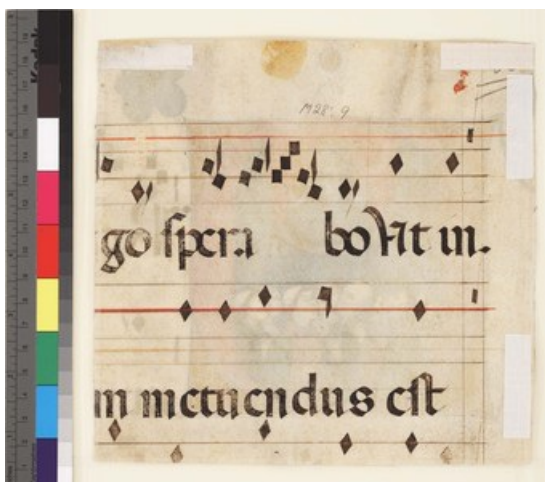 Kodak
M28:9
go ſpera bo in.
m metuendus eſt